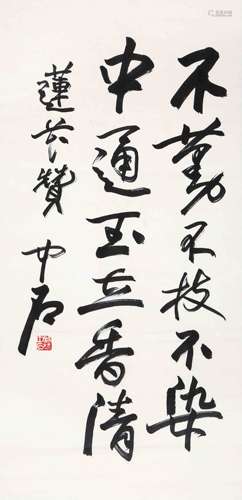 不蔓不枝不染
中通玉立香清
蓮花贊
中石